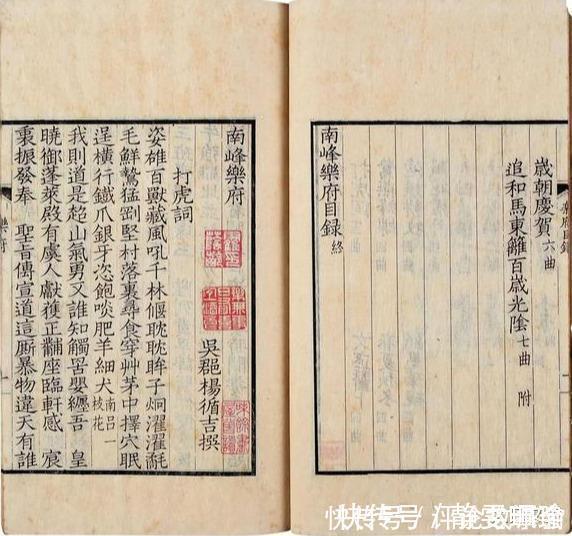 歲朝慶賀 六曲
追和馬東籬百歲光陰 七曲 附
南峰樂府目録 終
南峰樂府
吳郡楊循吉撰
打虎詞
姿雄百獸藏風吼千林偃眈眈眸子烱濯濯毳
毛鮮驁猛剛堅村落裏尋食穿艸茅中擇穴眠
逞橫行鐵爪銀牙恣飽啖肥羊細犬 南呂一枝花
我則道是超山氣勇又誰知觸罟嬰纏吾 皇
曉御蓬萊殿有虞人獻獲正黼座臨軒感 宸
衷振發奉 聖旨傳宣道這厮暴物違天有誰
樂府
快传号